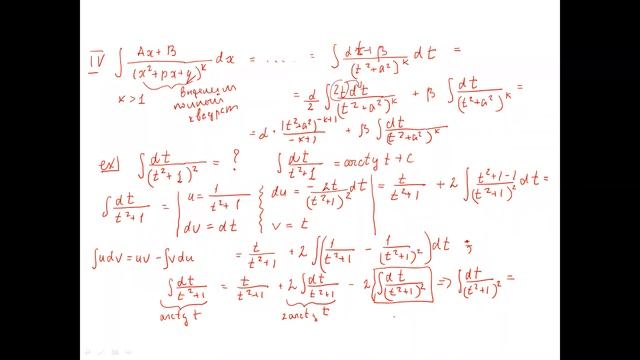 IV ∫ Ax+B / (x²+px+q)^k dx = ..... = ∫ αt+β / (t²+a²)^k dt =
k>1 выделили полный квадрат = α/2 ∫ 2t dt / (t²+a²)^k + β ∫ dt / (t²+a²)^k =
= α · (t²+a²)^(-k+1) / -k+1 + β ∫ dt / (t²+a²)^k
ex) ∫ dt / (t²+1)² = ? ∫ dt / t²+1 = arctg t + C
∫ dt / t²+1 = | u = 1 / t²+1 du = - 2t / (t²+1)² dt | = t / t²+1 + 2 ∫ t²+1-1 / (t²+1)² dt =
dv = dt v = t
∫udv = uv - ∫vdu = t / t²+1 + 2 ∫ ( 1 / t²+1 - 1 / (t²+1)² ) dt ;
∫ dt / t²+1 = t / t²+1 + 2 ∫ dt / t²+1 - 2 ∫ dt / (t²+1)² => ∫ dt / (t²+1)² =
arctg t 2arctg t